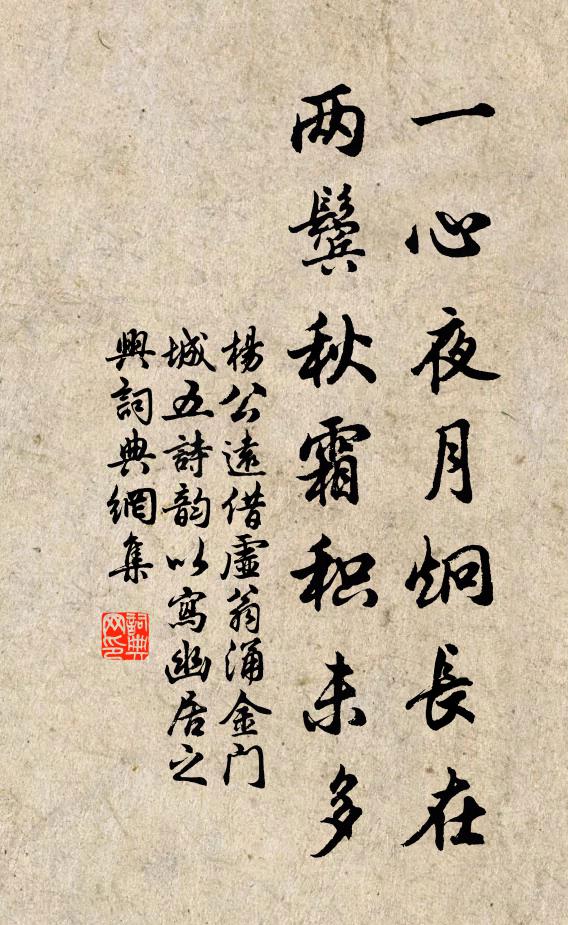 一心夜月炯長在
两鬢秋霜积未多
楊公遠借虛翁涌金门
城五詩韵以寫幽居之
興詞典網集
詞典
网印